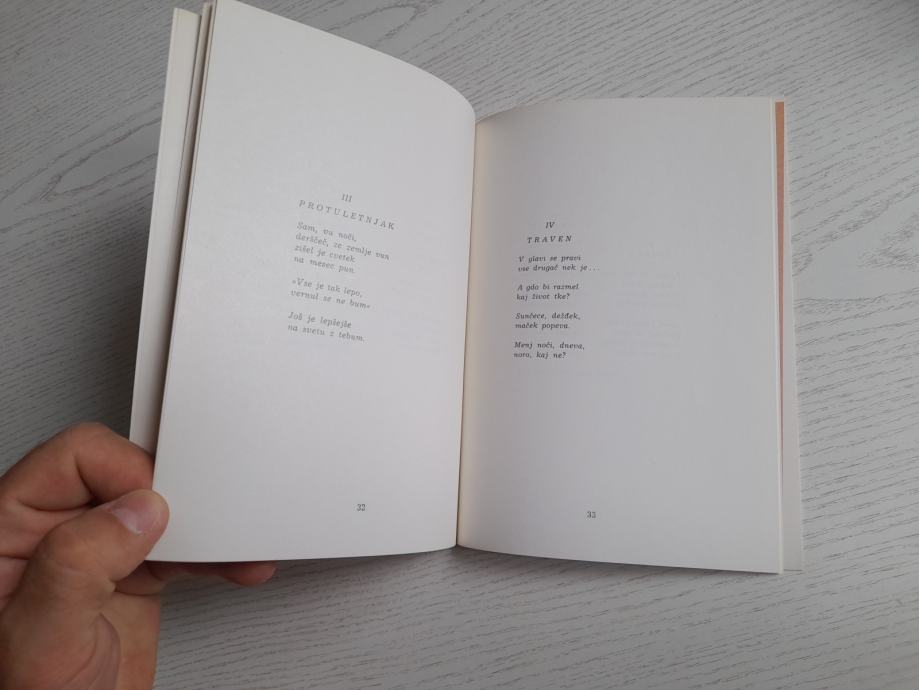 III
PROTULETNJAK
Sam, vu noči,
derščeč, ze zemlje vun
zišel je cvetek
na mesec pun.
»Vse je tak lepo,
vernul se ne bum«
Još je lepšejše
na svetu z tebum.
32
IV
TRAVEN
V glavi se pravi
vse drugač nek je...
A gdo bi razmel
kaj život tke?
Sunčece, dežđek,
maček popeva.
Menj noči, dneva,
noro, kaj ne?
33